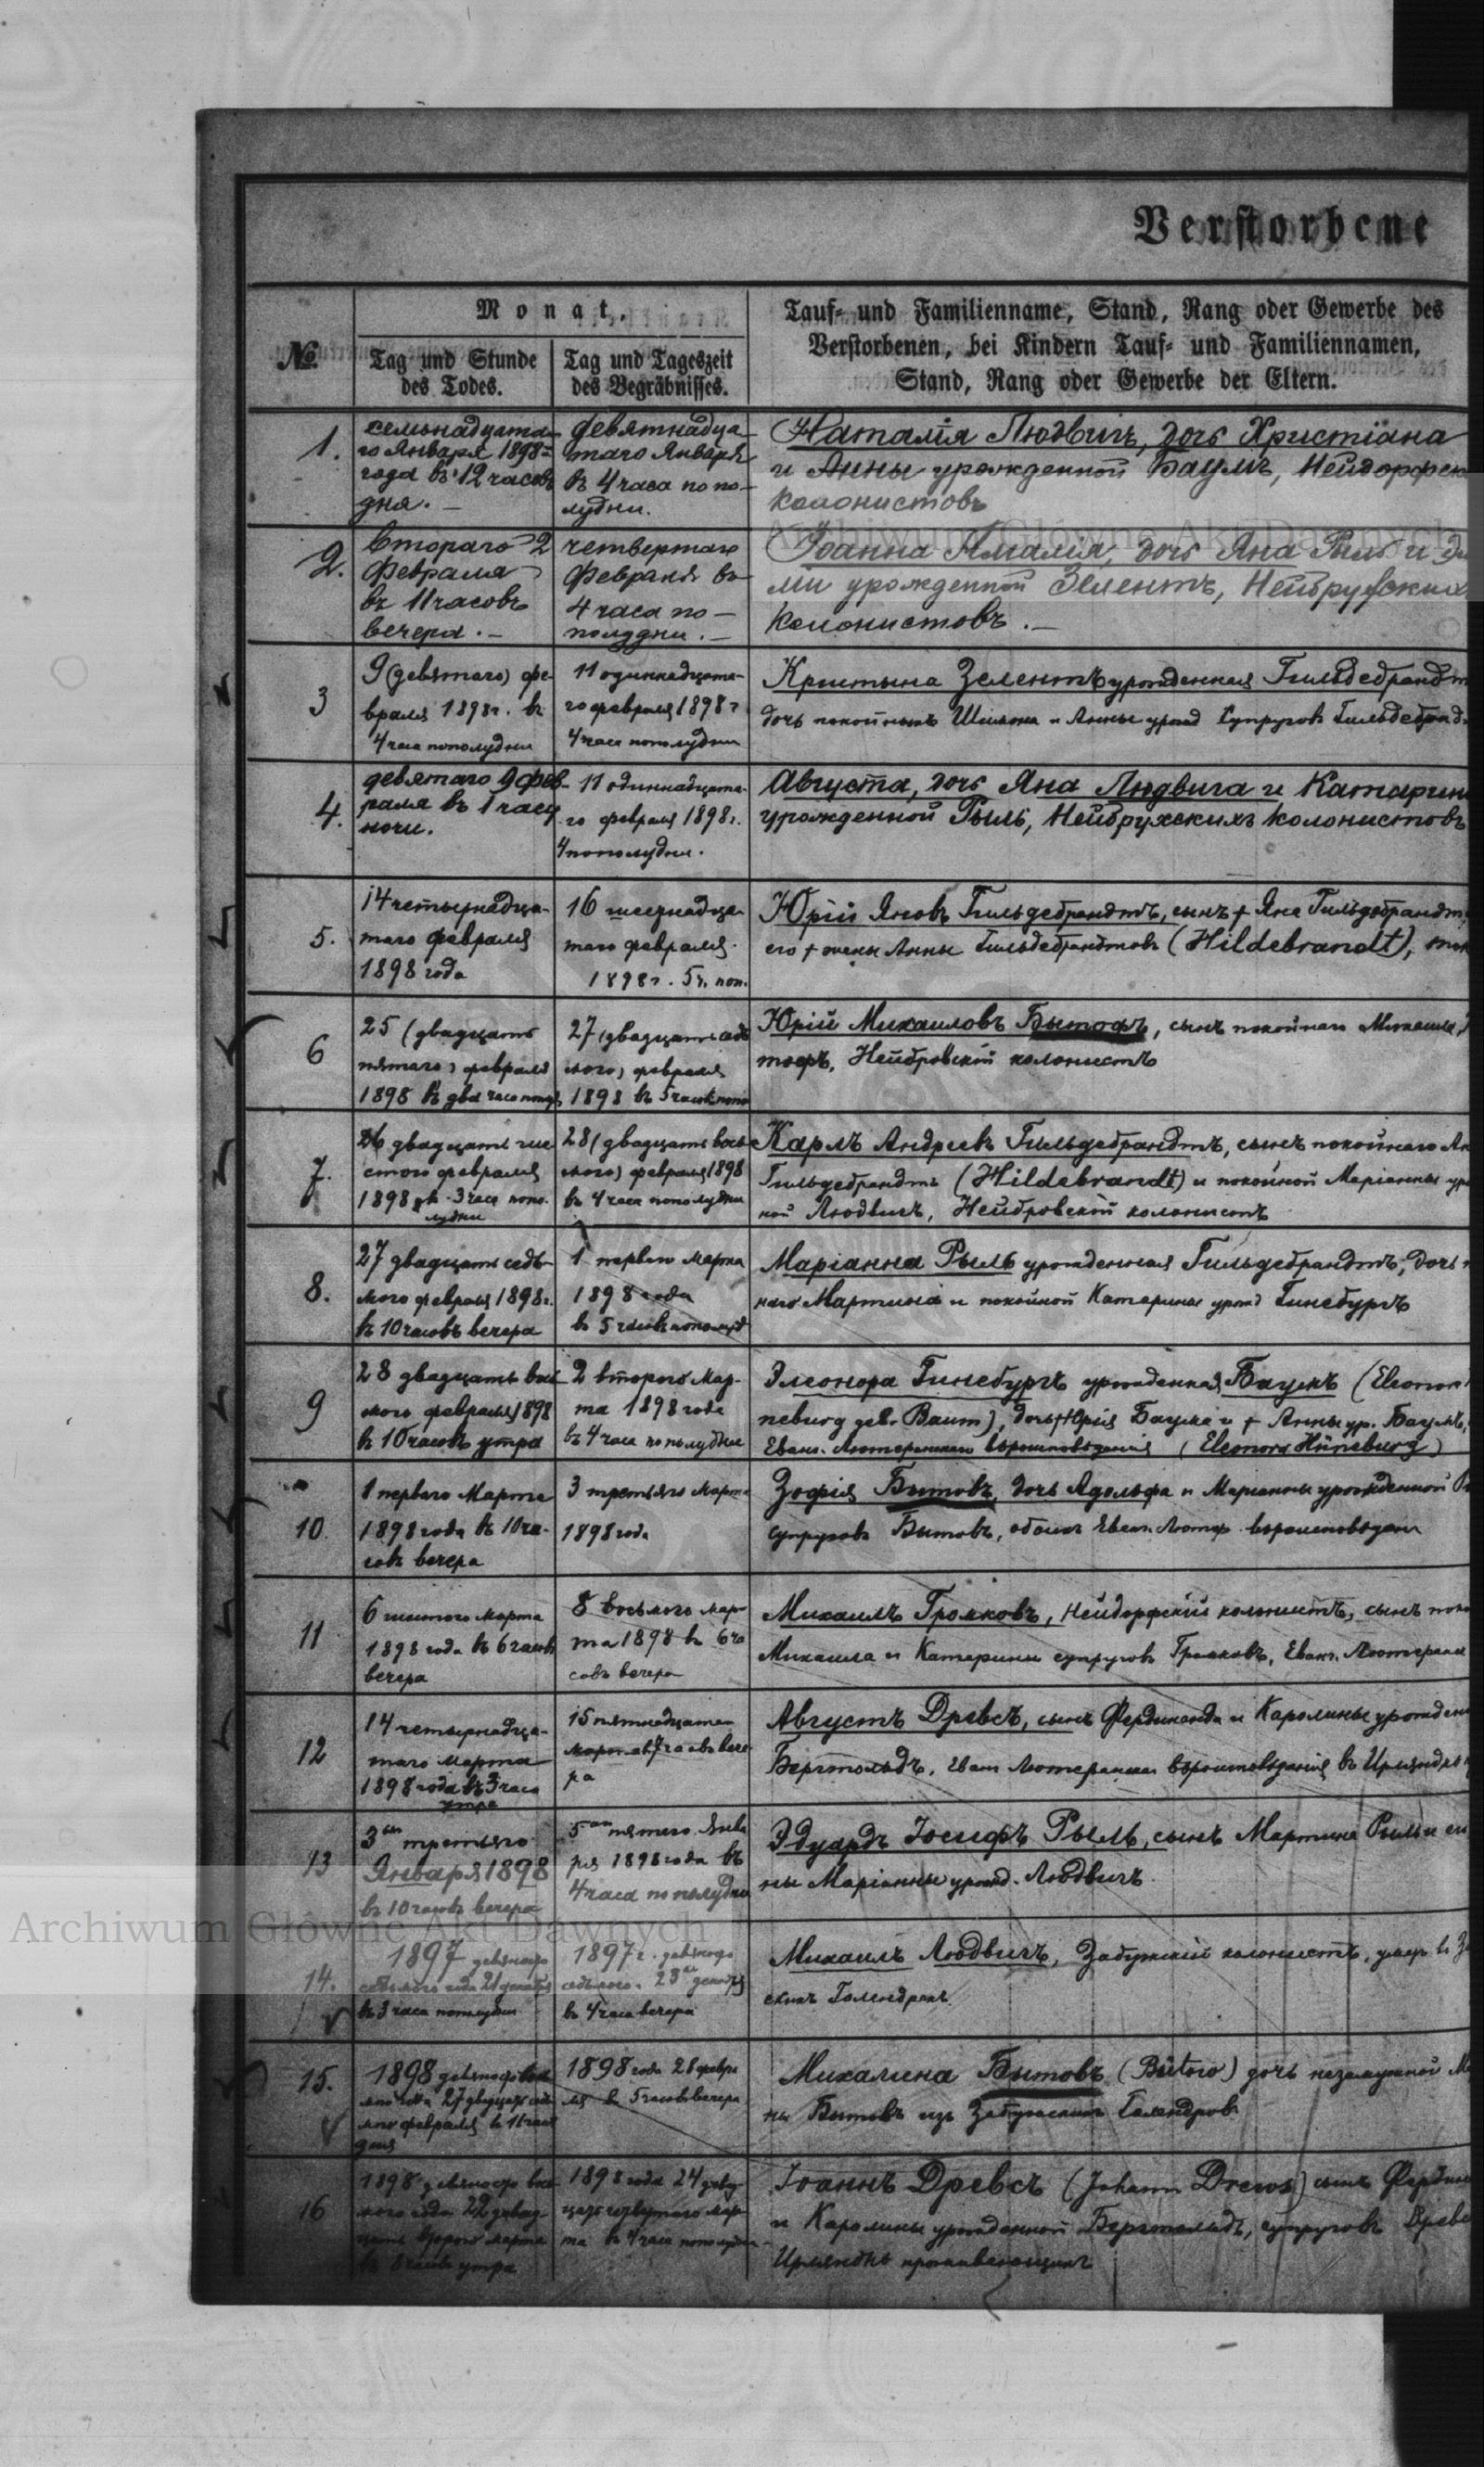 Verstorbene
№
Monat.
Tag und Stunde
des Todes.
Tag und Tageszeit
des Begräbnisses.
Tauf- und Familienname, Stand, Rang oder Gewerbe des
Verstorbenen, bei Kindern Tauf- und Familiennamen,
Stand, Rang oder Gewerbe der Eltern.
1.
семьнадцата-
го Января 1898
года въ 12 часовъ
дня. —
девятнадца-
таго Января
въ 4 часа по по-
лудни.
Наталія Людвигъ, дочь Христіана
и Анны урожденной Баумъ, Нейдорфск
колонистовъ
2.
Втораго 2
Февраля
въ 11 часовъ
вечера. —
четвертаго
Февраля въ
4 часа по-
полудни. —
Іоанна Амалія, дочь Яна Рыль и Э
ми урожденной Зелентъ, Нейбрузских
колонистовъ. —
3
9 (девятаго) фе-
враля 1898 г. въ
4 часа пополудни
11 одиннадцата-
го февраля 1898 г
4 часа пополудни
Кристына Зелентъ урожденная Гильдебрандт
дочь покойныхъ Шимона и Анны урожд супруговъ Гильдебранд
4.
девятаго 9 фев-
раля въ 1 часу
ночи.
11 одиннадцата-
го февраля 1898 г.
4 пополудни.
Августа, дочь Яна Людвига и Катарин
урожденной Рыль, Нейбрухскихъ колонистовъ
5.
14 четырнадца-
таго февраля
1898 года
16 шестнадца-
таго февраля
1898 г. 5 ч. поп.
Юрій Яновъ Гильдебрандтъ, сынъ + Яна Гильдебрандт
его + жены Анны Гильдебрандтовъ (Hildebrandt),
6
25 (двадцать
пятаго) февраля
1898 въ два часа
27 (двадцать седь
мого) февраля
1898 въ 5 часовъ попо
Юрій Михаиловъ Бытофъ, сынъ покойнаго Михаила
тофъ, Нейбровскій колонистъ
7.
26 двадцать ше
стого февраля
1898 въ 3 часа попо-
лудни
28 (двадцать вось
мого) февраля 1898
въ 4 часа пополудни
Карлъ Андреевъ Гильдебрандтъ, сынъ покойнаго Ан
Гильдебрандтъ (Hildebrandt) и покойной Маріанны уро
ной Людвигъ, Нейбровскій колонистъ
8.
27 двадцать седь-
мого февраля 1898 г.
въ 10 часовъ вечера
1 перваго марта
1898 года
въ 5 часовъ пополуд
Маріанна Рыль урожденная Гильдебрандтъ, дочь
наго Мартина и покойной Катарины урожд Гинебургъ
9
28 двадцать вось
мого февраля 1898
въ 10 часовъ утра
2 второго мар-
та 1898 года
въ 4 часа пополудни
Элеонора Гинебургъ урожденная Баумъ (Eleonor
neburg geb. Baum), дочь + Юрія Баума и + Анны ур. Баумъ,
Еванг. Лютеранскаго вероисповѣданія (Eleonora Hüneburg)
10.
1 перваго Марта
1898 года въ 10 ча-
совъ вечера
3 третьяго Марта
1898 года
Зофія Бытовъ, дочь Адольфа и Маріанны урожденной
супруговъ Бытовъ, обоихъ Еванг. Лютер. вероисповѣдан
11
6 шестого марта
1898 года въ 6 часовъ
вечера
8 восьмого мар-
та 1898 въ 6 ча
совъ вечера
Михаилъ Громковъ, Нейдорфскій колонистъ, сынъ поко
Михаила и Катарины супруговъ Громковъ, Еванг. Лютеранск
12
14 четырнадца-
таго марта
1898 года въ 3 часа
утра
15 пятнадцатаго
марта въ 7 часовъ вече
ра
Августъ Древсъ, сынъ Фердинанда и Каролины урожден
Бергтольдъ, Еван Лютеранскаго вѣроисповѣданія въ
13
3 третьяго
Января 1898
въ 10 часовъ вечера
5 пятаго Янва
ря 1898 года въ
4 часа пополудни
Эдуардъ Іосифъ Рыль, сынъ Мартина Рыль и
ны Маріанны урожд. Людвигъ
14.
1897 девяносто
седьмого года 21 декабря
въ 3 часа пополудни
1897 г. девяносто
седьмого 23 декабря
въ 4 часа вечера
Михаилъ Людвигъ, Забужскій колонистъ, умеръ въ За
скихъ Голендрахъ
15.
1898 девяносто вось
мого года 27 двадцать седь
мого февраля въ 11 часов
дня
1898 года 28 февра
ля въ 5 часовъ вечера
Михалина Бытовъ (Bütow) дочь незамужной М
ны Бытовъ изъ Забужскихъ Голендровъ
16
1898 девяносто вось
мого года 22 двад-
цать второго марта
въ 8 часовъ утра
1898 года 24 двад
цать четвертаго мар
та въ 4 часа пополудни
Іоаннъ Древсъ (Johann Drews) сынъ Фердин
и Каролины урожденной Бергтольдъ, супруговъ Древс
проживающихъ
Archiwum Główne Akt Dawnych
Archiwum Główne Akt Dawnych